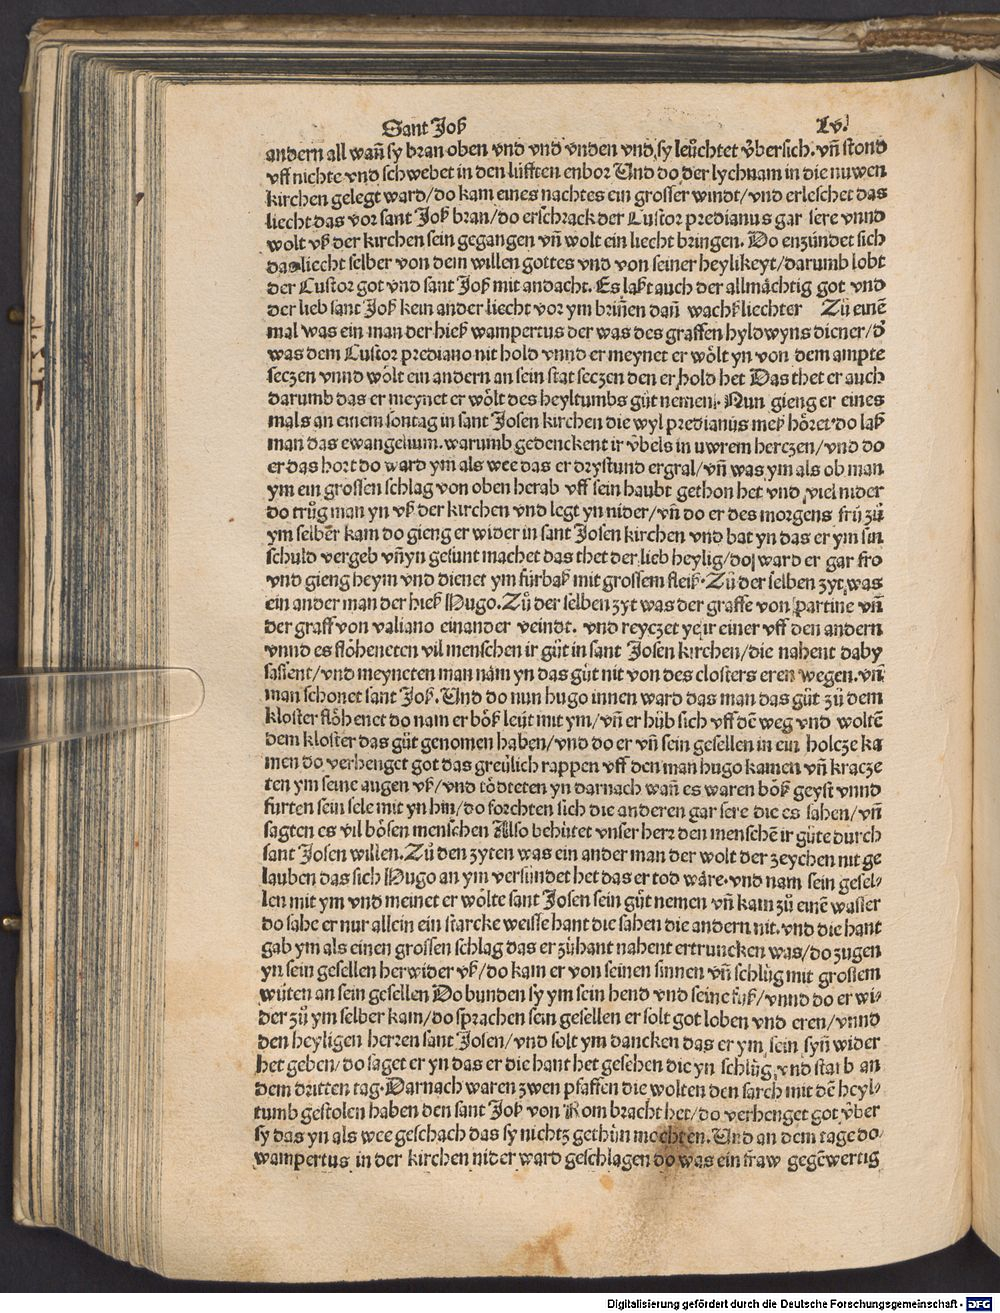 Sant Joß Lv.
andern all wañ sy bran oben vnd vnd vnden vnd sy leuͤchtet vͤbersich. vñ stond
vff nichte vnd schwebet in den luͤfften enbor Vnd do der lychnam in die nuwen
kirchen gelegt ward/do kam eines nachtes ein grosser windt/vnd erleschet das
liecht das vor sant Joß bran/do erschrack der Custor predianus gar sere vnnd
wolt vß der kirchen sein gegangen vñ wolt ein liecht bringen. Do enzuͤndet sich
das liecht selber von dem willen gottes vnd von seiner heylikeyt/darumb lobt
der Custor got vnd sant Joß mit andacht. Es laßt auch der allmaͤchtig got vnd
der lieb sant Joß kein ander liecht vor ym briñen dañ wachßliechter Zuͦ einē
mal was ein man der hieß wampertus der was des graffen hyldwyns diener/d'
was dem Custor prediano nit hold vnnd er meynet er woͤlt yn von dem ampte
seczen vnnd woͤlt ein andern an sein stat seczen den er hold het Das thet er auch
darumb das er meynet er woͤlt des heyltumbs guͦt nemen. Nun gieng er eines
mals an einem sontag in sant Josen kirchen die wyl predianus meß hoͤret do laß
man das ewangelium. warumb gedenckent ir vͤbels in uwrem herczen/vnd do
er das hort do ward ym als wee das er drystund ergral/vñ was ym als ob man
ym ein grossen schlag von oben herab vff sein haubt gethon het vnd viel nider
do truͦg man yn vß der kirchen vnd legt yn nider/vñ do er des morgens fruͤ zuͦ
ym selber kam do gieng er wider in sant Josen kirchen vnd bat yn das er ym sin
schuld vergeb vñ yn gesunt machet das thet der lieb heylig/do ward er gar fro
vnd gieng heym vnd dienet ym fuͤrbaß mit grossem fleiß. Zuͦ der selben zyt was
ein ander man der hieß Hugo. Zuͦ der selben zyt was der graffe von partine vñ
der graff von valiano einander veindt. vnd reyczet ye ir einer vff den andern
vnnd es floͤheneten vil menschen ir guͦt in sant Josen kirchen/die nahent daby
sassent/vnd meyneten man nam yn das guͦt nit von des closters eren wegen. vñ
man schonet sant Joß. Vnd do nun hugo innen ward das man das guͦt zuͦ dem
kloster floͤhenet do nam er boͤß leuͤt mit ym/vñ er huͦb sich vff dē weg vnd woltē
dem kloster das guͦt genomen haben/vnd do er vñ sein gesellen in ein holcze ka
men do verhenget got das greuͤlich rappen vff den man hugo kamen vñ kracze
ten ym seine augen vß/vnd toͤdteten yn darnach wañ es waren boͤß geyst vnnd
furten sein sele mit yn hin/do forchten sich die anderen gar sere die es sahen/vñ
sagten es vil boͤsen menschen Also behuͤtet vnser herr den menschē ir guͤte durch
sant Josen willen. Zuͦ den zyten was ein ander man der wolt der zeychen nit ge
lauben das sich Hugo an ym versuͤndet het das er tod waͤre. vnd nam sein gesel-
len mit ym vnd meinet er woͤlte sant Josen sein guͦt nemen vñ kam zuͦ einē wasser
do sahe er nur allein ein starcke weisse hant die sahen die andern nit. vnd die hant
gab ym als einen grossen schlag das er zuͦhant nahent ertruncken was/do zugen
yn sein gesellen herwider vß/do kam er von seinen sinnen vñ schluͦg mit grossem
wuͤten an sein gesellen Do bunden sy ym sein hend vnd seine fuͤß/vnnd do er wi-
der zuͦ ym selber kam/do sprachen sein gesellen er solt got loben vnd eren/vnnd
den heyligen herren sant Josen/vnd solt ym dancken das er ym sein syñ wider
het geben/do saget er yn das er die hant het gesehen die yn schluͦg vnd starb an
dem dritten tag. Darnach waren zwen pfaffen die wolten den sarch mit dē heyl-
tumb gestolen haben den sant Joß von Rom bracht het/do verhenget got vͤber
sy das yn als wee geschach das sy nichtz gethuͦn mochten. Vnd an dem tage do
wampertus in der kirchen nider ward geschlagen do was ein fraw gegēwertig
Digitalisierung gefördert durch die Deutsche Forschungsgemeinschaft - DFG